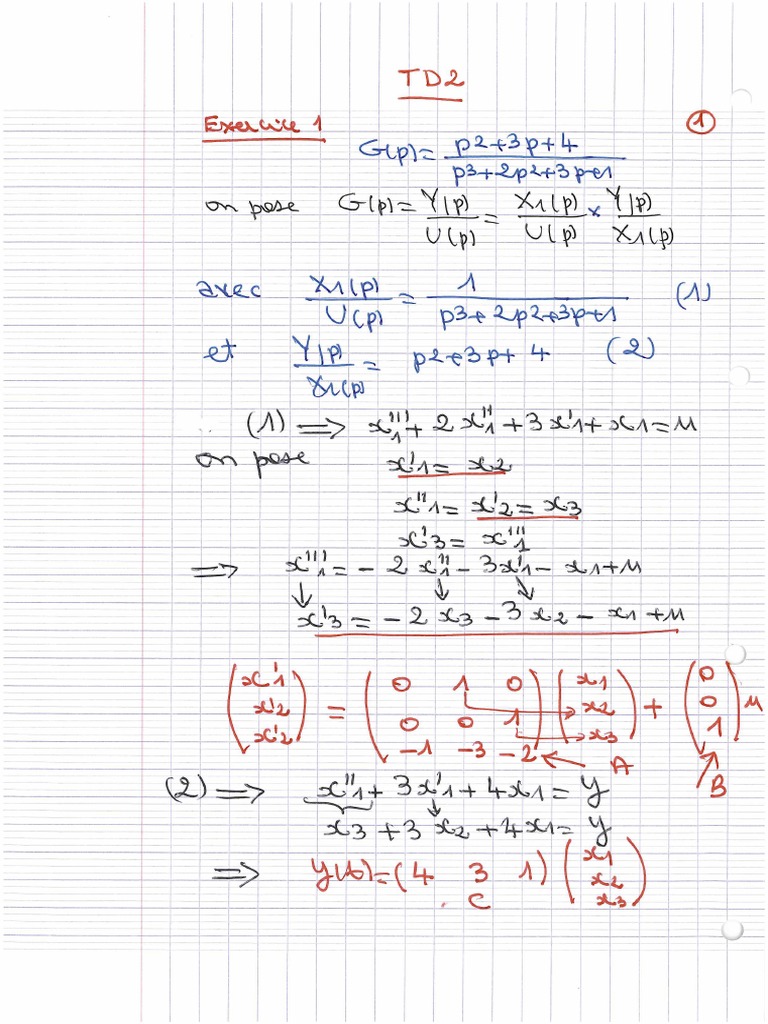 TD2
Exercice 1
①
G(p) = p2+3p+4 / p3+2p2+3p+1
on pose G(p) = Y(p)/U(p) = X1(p)/U(p) × Y(p)/X1(p)
avec X1(p)/U(p) = 1 / p3+2p2+3p+1 (1)
et Y(p)/X1(p) = p2+3p+4 (2)
(1) ⟹ x'''1 + 2x''1 + 3x'1 + x1 = u
on pose x'1 = x2
x''1 = x'2 = x3
x'3 = x'''1
⟹ x'''1 = - 2 x''1 - 3x'1 - x1 + u
↓ ↓ ↓
x'3 = - 2 x3 - 3 x2 - x1 + u
(x'1 (0 1 0) (x1) (0
x'2 = 0 0 1 x2 + 0 u
x'2) -1 -3 -2) x3 1)
A B
(2) ⟹ x''1 + 3x'1 + 4x1 = y
x3 + 3 x2 + 4x1 = y
⟹ y(t) = (4 3 1) (x1
x2
C x3)